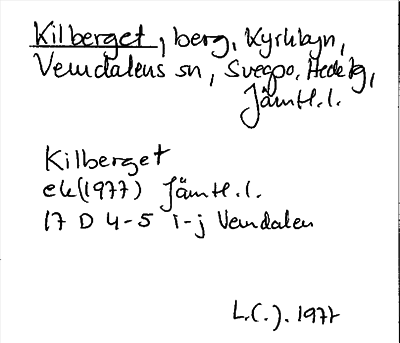 Kilberget, berg, Kyrkbyn,
Vemdalens sn, Svegpo. Hede tg,
Jämtl.l.
Kilberget
ek(1977) Jämtl.l.
17 D 4-5 i-j Vemdalen
L.(.). 1977